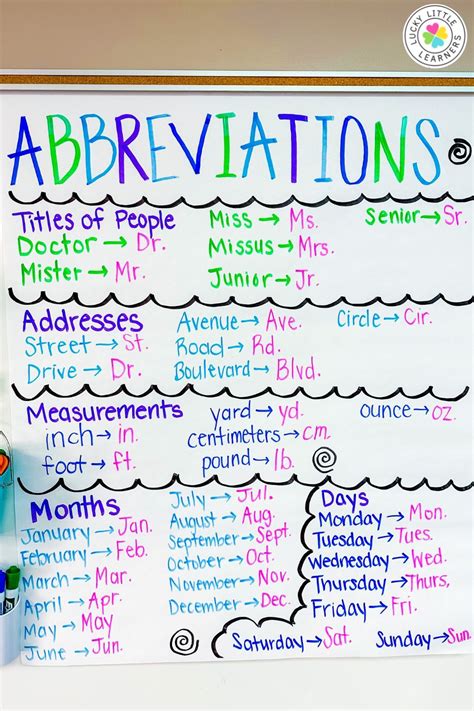 LUCKY LITTLE LEARNERS
ABBREVIATIONS
Titles of People
Doctor → Dr.
Mister → Mr.
Miss → Ms.
Missus → Mrs.
Junior → Jr.
Senior → Sr.
Addresses
Street → St.
Drive → Dr.
Avenue → Ave.
Road → Rd.
Boulevard → Blvd.
Circle → Cir.
Measurements
inch → in.
foot → ft.
yard → yd.
centimeters → cm.
pound → lb.
ounce → oz.
Months
January → Jan.
February → Feb.
March → Mar.
April → Apr.
May → May
June → Jun.
July → Jul.
August → Aug.
September → Sept.
October → Oct.
November → Nov.
December → Dec.
Days
Monday → Mon.
Tuesday → Tues.
Wednesday → Wed.
Thursday → Thurs.
Friday → Fri.
Saturday → Sat.
Sunday → Sun.